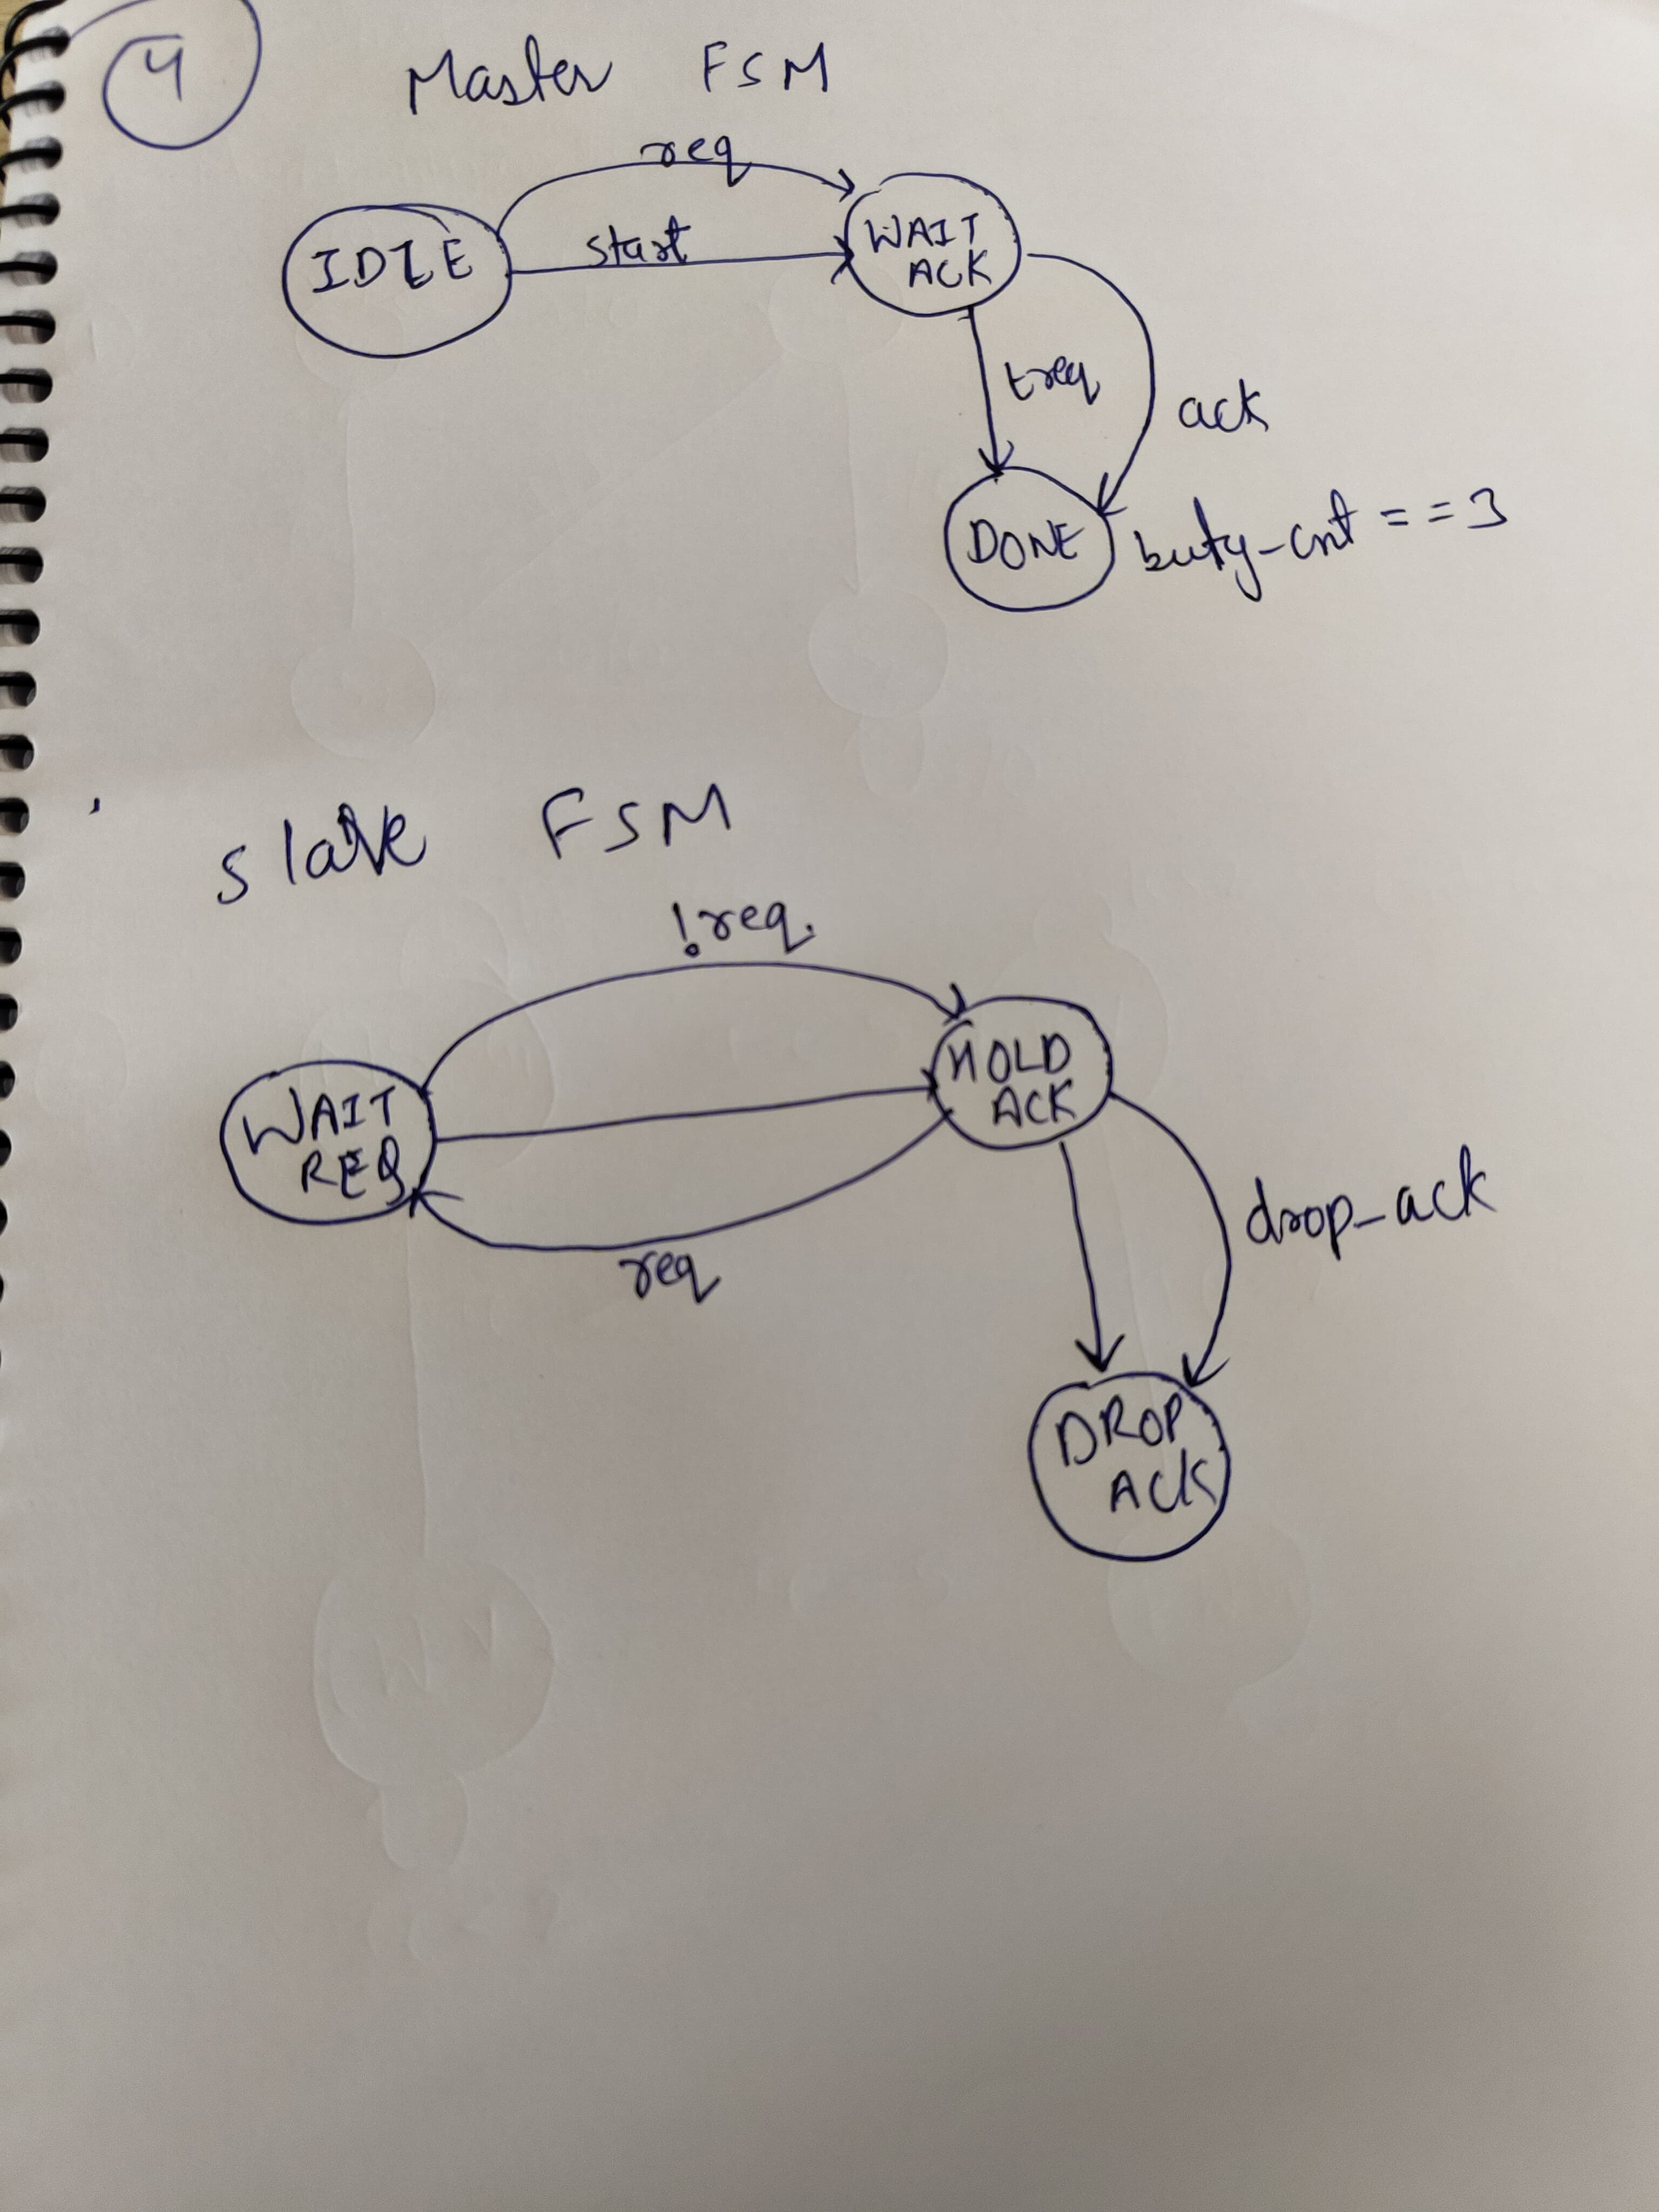 4
Master FSM
req
IDLE
start
WAIT
ACK
treq
ack
DONE
buty-cnt == 3
slave FSM
!req.
WAIT
REQ
HOLD
ACK
req
drop_ack
DROP
ACK